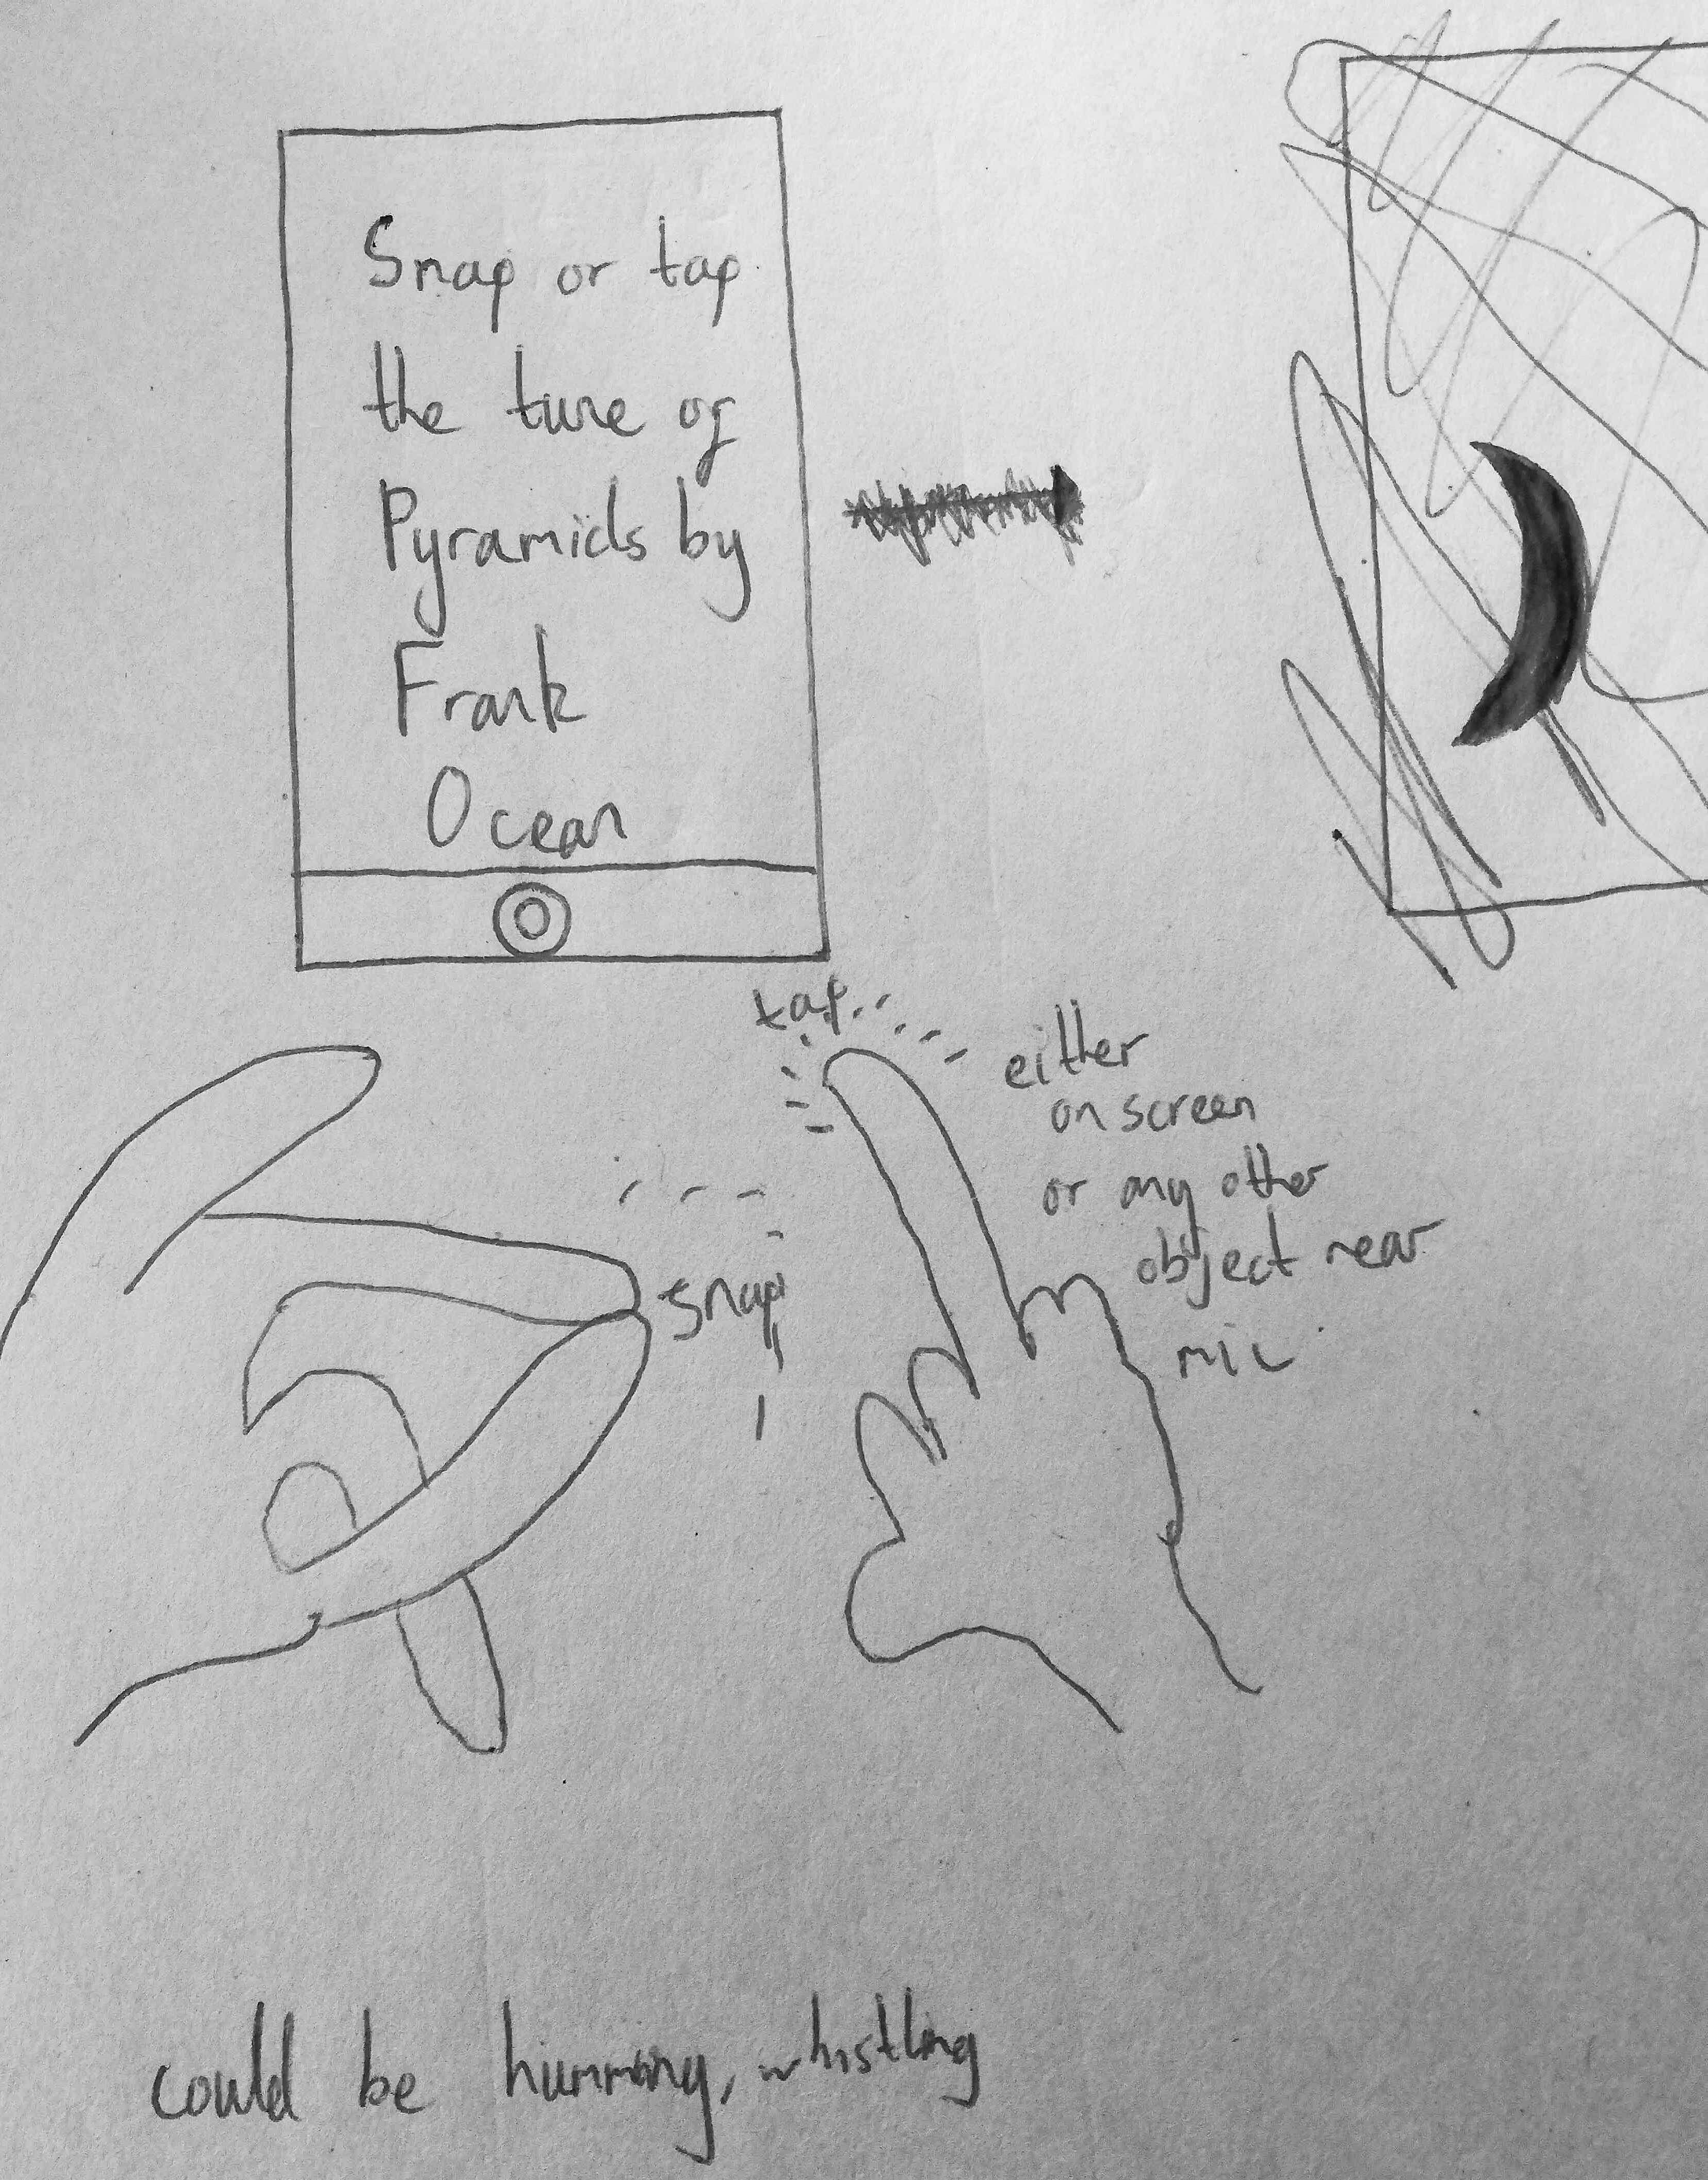 Snap or tap
the tune of
Pyramids by
Frank
Ocean
tap
either
on screen
or any other
object near
mic
snap
could be humming, whistling